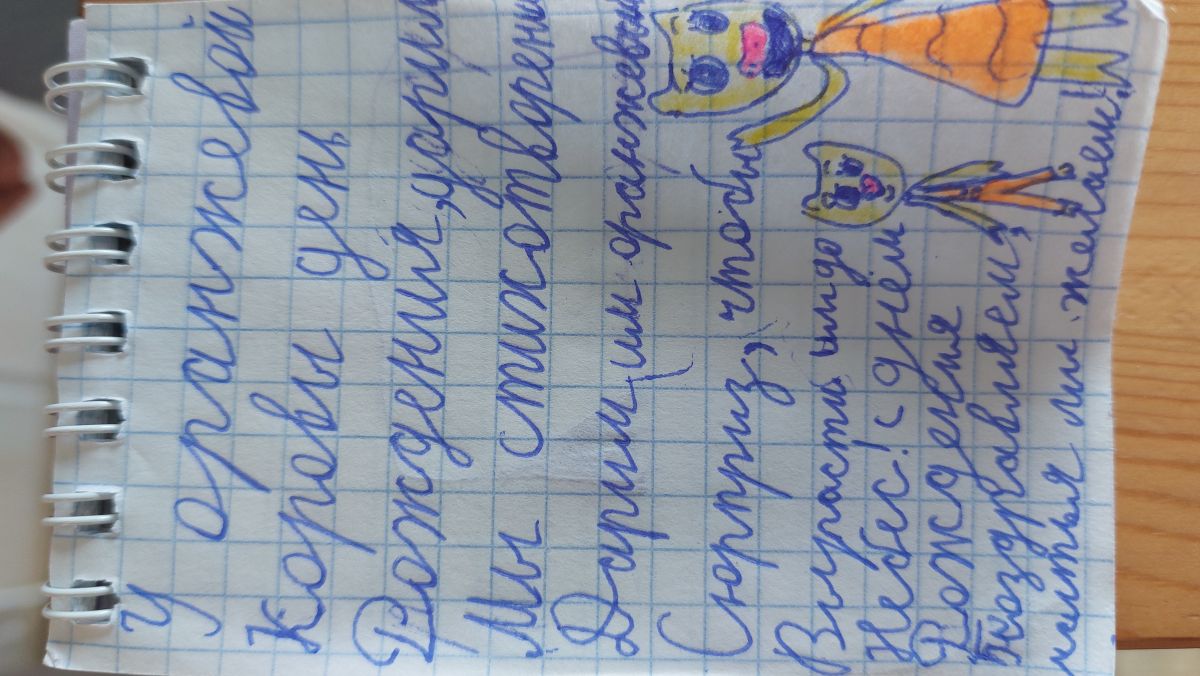 У оранжевой
Коровы день
Рождения, дарим
Мы стихотворени
Дарим им оранжевый
Сюрприз, чтобы
Вырасти им до
Небес! С днём
Рождения
Поздравляем,
счастья мы желаем!